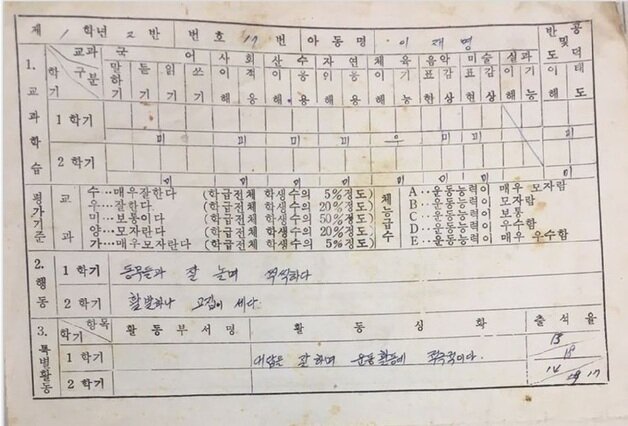 제 1 학년 2 반 번호 17 번 아동명 이재명
1. 교과학습
교과 국어 사회 산수 자연 체육 음악 미술 실과 반공및도덕
학기 구분 말하기 듣기 읽기 쓰기 이해 적용 이해 응용 이해 응용 이해 기능 표현 감상 표현 감상 이해 기능 이해 태도
1 학기
미 미 미 미 우 미 미 미
2 학기
미 미 미 미 미 미 미 미
평가기준
교과
수‥매우잘한다 (학급전체 학생수의 5%정도)
우‥잘한다. (학급전체 학생수의 20%정도)
미‥보통이다 (학급전체 학생수의 50%정도)
양‥모자란다 (학급전체 학생수의 20%정도)
가‥매우모자란다 (학급전체 학생수의 5%정도)
체능급수
A‥운동능력이 매우 모자람
B‥운동능력이 모자람
C‥운동능력이 보통
D‥운동능력이 우수함
E‥운동능력이 매우 우수함
2. 행동
1 학기 동무들과 잘 놀며 씩씩하다
2 학기 활발하나 고집이 세다.
3. 특별활동
학기 항목 활동부서명 활동상황 출석율
1 학기 대답을 잘 하며 운동활동에 적극적이다.
2 학기